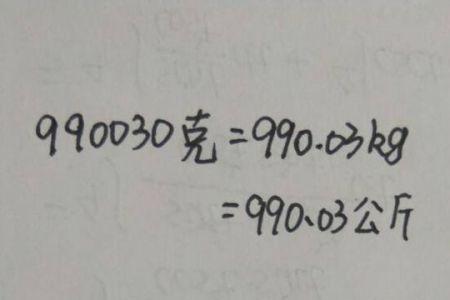 990030克=990.03kg
=990.03公斤